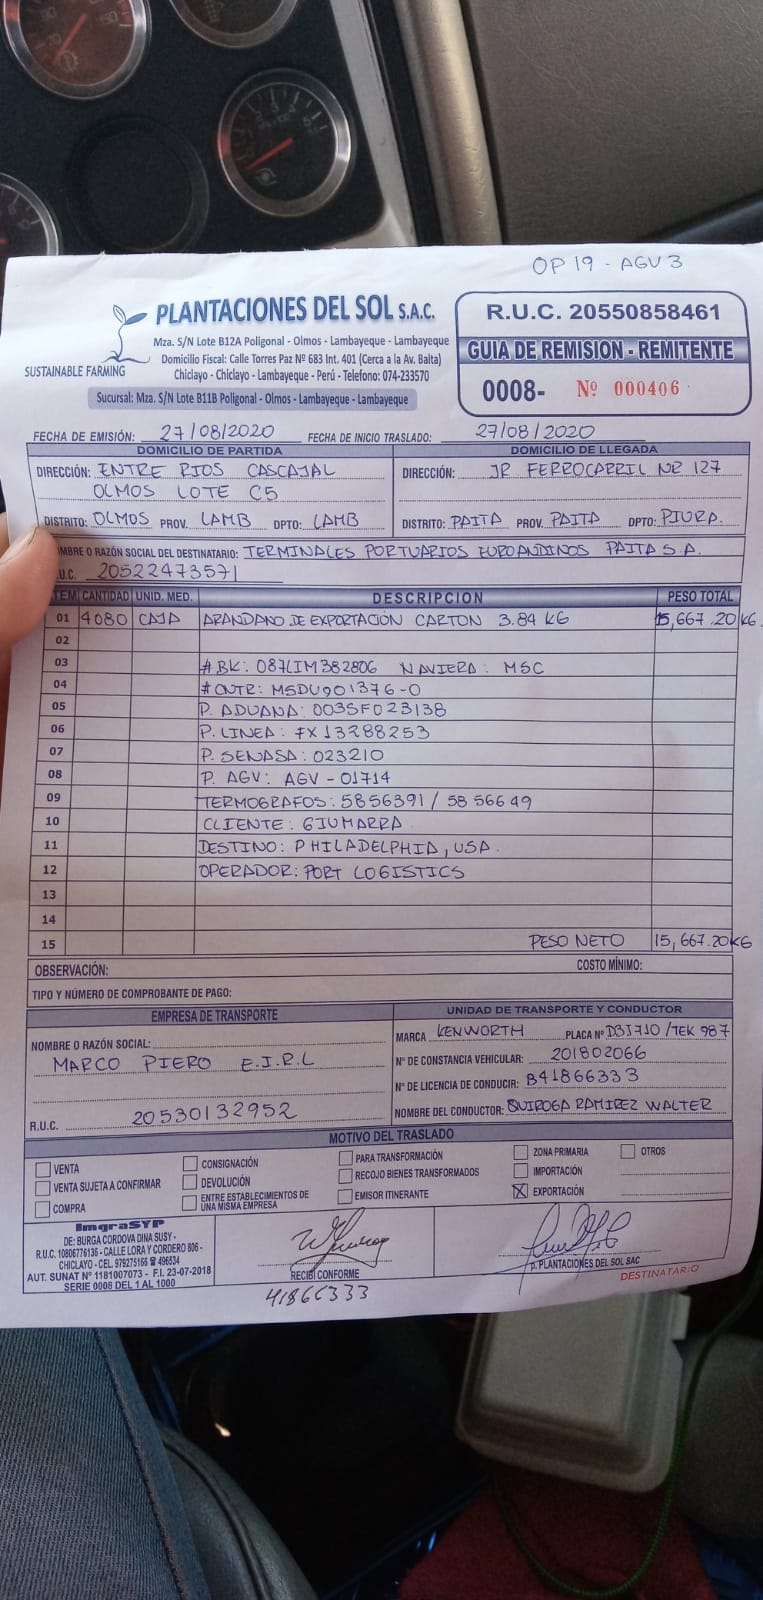 OP 19 - AGV 3
PLANTACIONES DEL SOL S.A.C.
SUSTAINABLE FARMING
Mza. S/N Lote B12A Poligonal - Olmos - Lambayeque - Lambayeque
Domicilio Fiscal: Calle Torres Paz Nº 683 Int. 401 (Cerca a la Av. Balta)
Chiclayo - Chiclayo - Lambayeque - Perú - Telefono: 074-233570
Sucursal: Mza. S/N Lote B11B Poligonal - Olmos - Lambayeque - Lambayeque
R.U.C. 20550858461
GUIA DE REMISION - REMITENTE
0008- Nº 000406
FECHA DE EMISIÓN: 27/08/2020 FECHA DE INICIO TRASLADO: 27/08/2020
DOMICILIO DE PARTIDA
DIRECCIÓN: ENTRE RIOS CASCAJAL
OLMOS LOTE C5
DISTRITO: OLMOS PROV. LAMB DPTO: LAMB
DOMICILIO DE LLEGADA
DIRECCIÓN: JR FERROCARRIL NR 127
DISTRITO: PAITA PROV. PAITA DPTO: PIURA.
MBRE O RAZÓN SOCIAL DEL DESTINATARIO: TERMINALES PORTUARIOS EUROANDINOS PAITA S.A.
.U.C. 20522473571
TEM CANTIDAD UNID. MED. DESCRIPCION PESO TOTAL
01 4080 CAJA ARANDANO DE EXPORTACIÓN CARTON 3.84 KG 15,667.20 KG.
02
03 #BK: 087LIM382806 NAVIERA: MSC
04 #CNTR: MSDU901376-0
05 P. ADUANA: 003SF023138
06 P. LINEA: FX13288253
07 P. SENASA: 023210
08 P. AGV: AGV - 01714
09 TERMOGRAFOS: 5856391 / 5856649
10 CLIENTE: GIUMARRA
11 DESTINO: PHILADELPHIA, USA.
12 OPERADOR: PORT LOGISTICS
13
14
15 PESO NETO 15,667.20KG
OBSERVACIÓN: COSTO MÍNIMO:
TIPO Y NÚMERO DE COMPROBANTE DE PAGO:
EMPRESA DE TRANSPORTE
NOMBRE O RAZÓN SOCIAL:
MARCO PIERO E.I.R.L
R.U.C. 20530132952
UNIDAD DE TRANSPORTE Y CONDUCTOR
MARCA KENWORTH PLACA Nº D3J710 /TEK 987
Nº DE CONSTANCIA VEHICULAR: 201802066
Nº DE LICENCIA DE CONDUCIR: B41866333
NOMBRE DEL CONDUCTOR: QUIROGA RAMIREZ WALTER
MOTIVO DEL TRASLADO
VENTA CONSIGNACIÓN PARA TRANSFORMACIÓN ZONA PRIMARIA OTROS
VENTA SUJETA A CONFIRMAR DEVOLUCIÓN RECOJO BIENES TRANSFORMADOS IMPORTACIÓN
COMPRA ENTRE ESTABLECIMIENTOS DE EMISOR ITINERANTE X EXPORTACIÓN
UNA MISMA EMPRESA
ImgraSYP
DE: BURGA CORDOVA DINA SUSY -
R.U.C. 10806776136 - CALLE LORA Y CORDERO 806 -
CHICLAYO - CEL. 979275165 ☎ 496534
AUT. SUNAT Nº 1181007073 - F.I. 23-07-2018
SERIE 0008 DEL 1 AL 1000
RECIBÍ CONFORME
41866333
p. PLANTACIONES DEL SOL SAC
DESTINATARIO